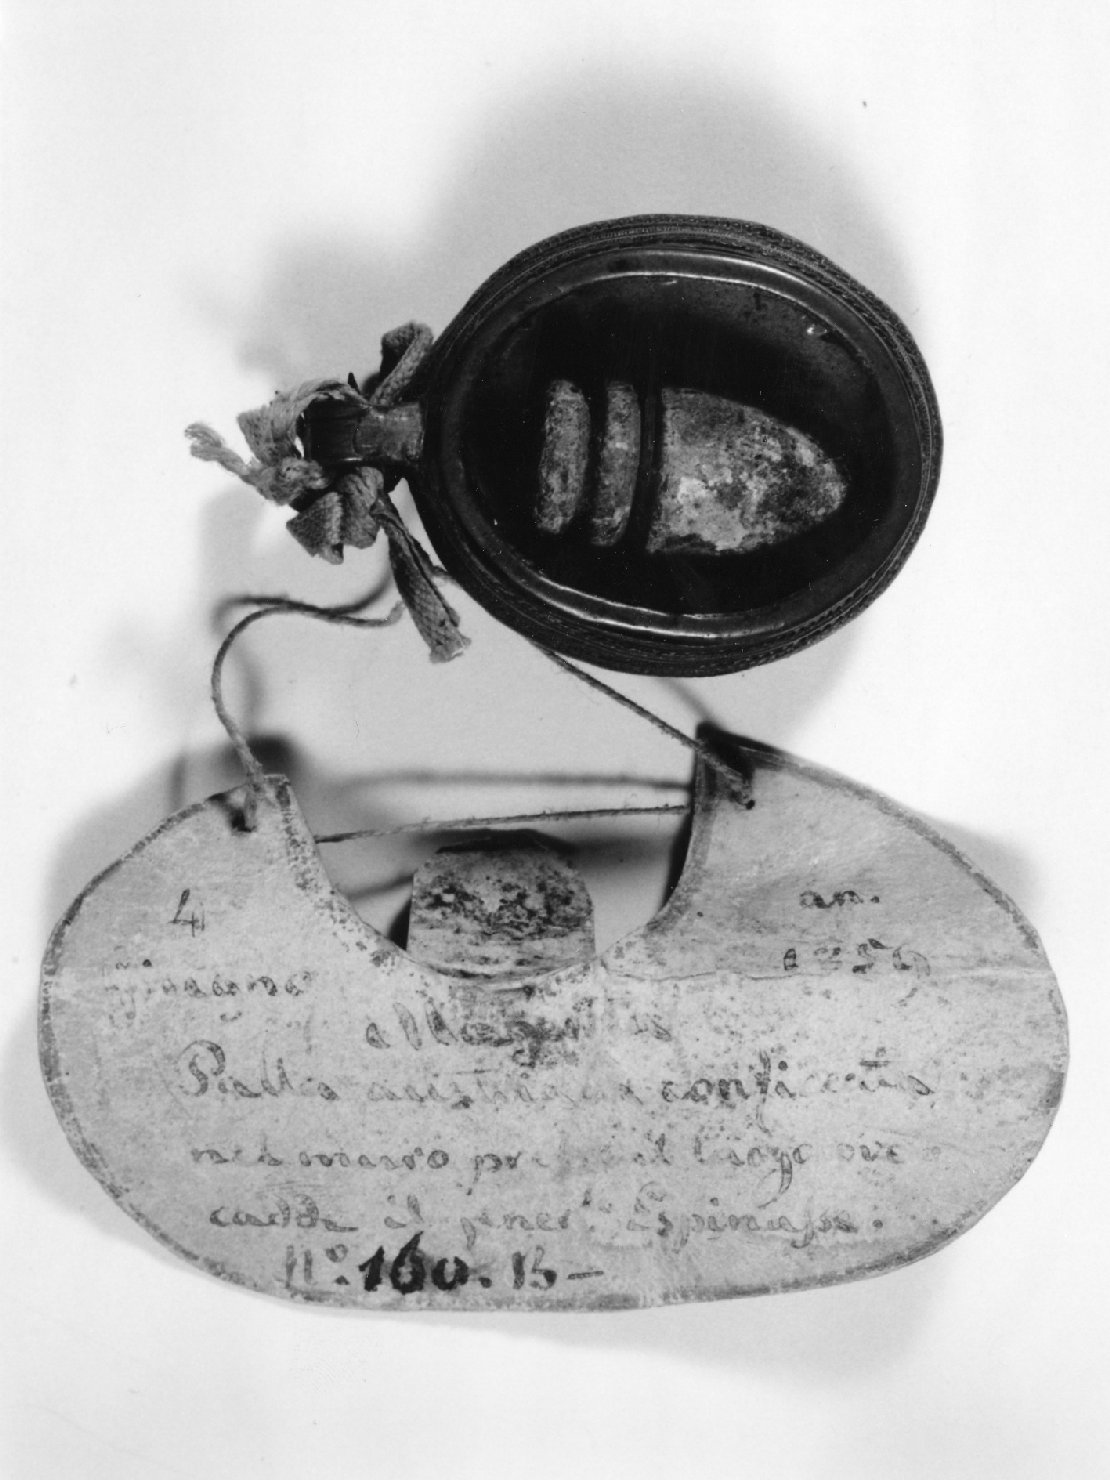 4 an.
1859
Palla austriaca conficcatas
nel muro presso il luogo ove
cadde il gener. Espinasse.
N.º 160. B—